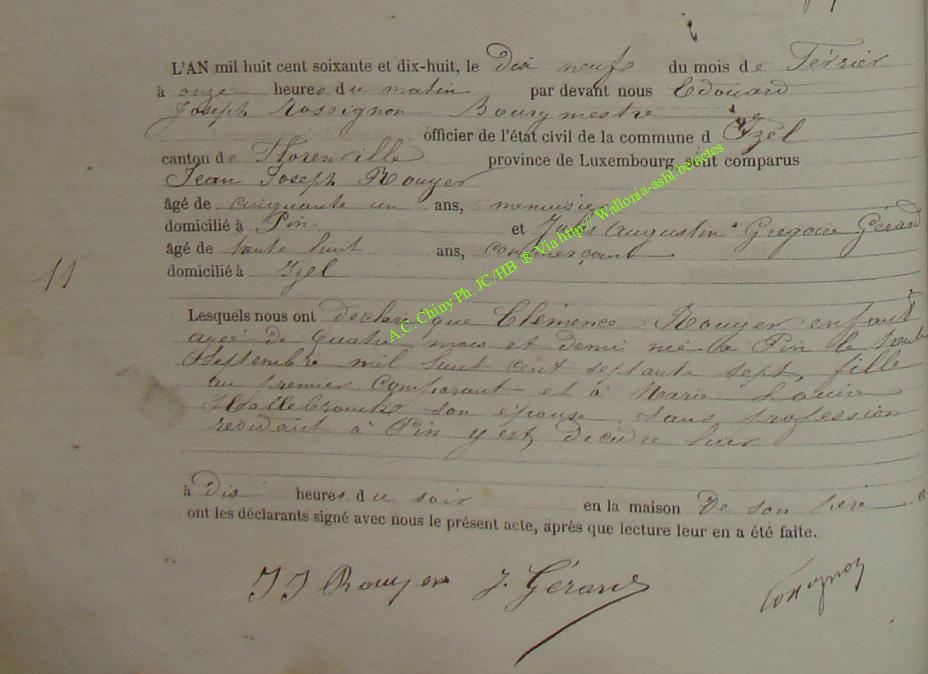 L'AN mil huit cent soixante et dix-huit, le dix neuf du mois de Février
à onze heures du matin par devant nous Edouard
Joseph Rossignon Bourgmestre
officier de l'état civil de la commune d'Izel
canton de Florenville province de Luxembourg, sont comparus
Jean Joseph Rouyer
âgé de cinquante un ans, menuisier
domicilié à Pin et Jules Augustin Gregoire Gérard
âgé de trente huit ans, commerçant
domicilié à Izel
11
Lesquels nous ont declaré que Clémence Rouyer enfant
agée de quatre mois et demi né à Pin le trente
Septembre mil huit cent septante sept, fille
au premier comparant et à Marie Louise
son épouse sans profession
residant à Pin y est decedée hier
à dix heures du soir en la maison De son père et
ont les déclarants signé avec nous le présent acte, après que lecture leur en a été faite.
JJ Rouyer J. Gérard Rossignon
A.C. Chiny Ph. JC/HB ® Via http:// Wallonia-asbl-be/actes